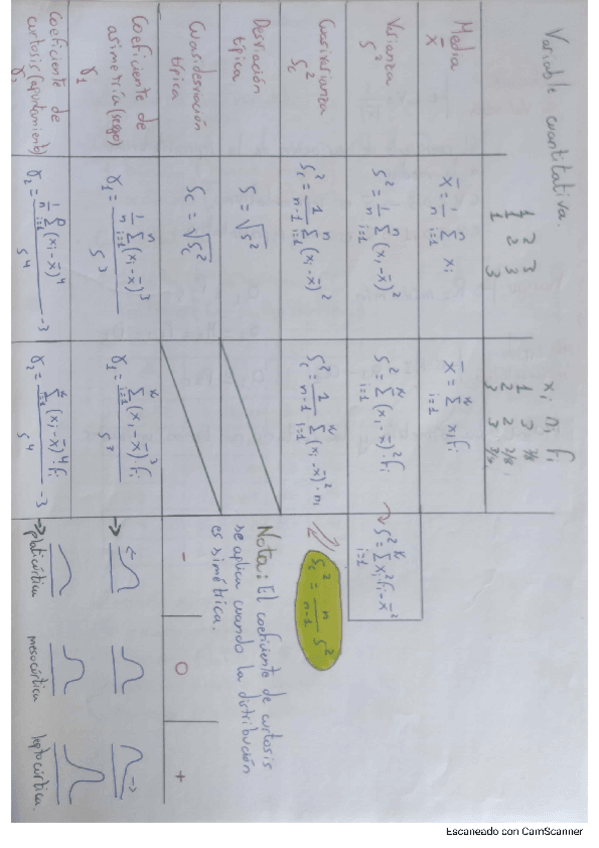 Variable cuantitativa.
1 2 3
1 2 3
3
xᵢ nᵢ fᵢ
1 3 3/8
2 2 2/8
3 3 3/8
Media x̄
x̄ = 1/n Σᵢ₌₁ⁿ xᵢ
x̄ = Σᵢ₌₁ᵏ xᵢfᵢ
Varianza S²
S² = 1/n Σᵢ₌₁ⁿ (xᵢ - x̄)²
S² = Σᵢ₌₁ᵏ (xᵢ - x̄)² · fᵢ
→ S² = Σᵢ₌₁ᵏ xᵢ² fᵢ - x̄²
Cuasivarianza S_c²
S_c² = 1/(n-1) Σᵢ₌₁ⁿ (xᵢ - x̄)²
S_c² = 1/(n-1) Σᵢ₌₁ᵏ (xᵢ - x̄)² · nᵢ
S_c² = n/(n-1) S²
Desviación típica
S = √S²
Nota: El coeficiente de curtosis
se aplica cuando la distribución
es simétrica.
Cuasidesviación típica
S_c = √S_c²
- 0 +
Coeficiente de asimetría (sesgo) γ₁
γ₁ = (1/n Σᵢ₌₁ⁿ (xᵢ - x̄)³)/S³
γ₁ = (Σᵢ₌₁ᵏ (xᵢ - x̄)³ · fᵢ)/S³
Coeficiente de curtosis (apuntamiento) γ₂
γ₂ = (1/n Σᵢ₌₁ⁿ (xᵢ - x̄)⁴)/S⁴ - 3
γ₂ = (Σᵢ₌₁ᵏ (xᵢ - x̄)⁴ · fᵢ)/S⁴ - 3
→ platicúrtica mesocúrtica leptocúrtica.
Escaneado con CamScanner